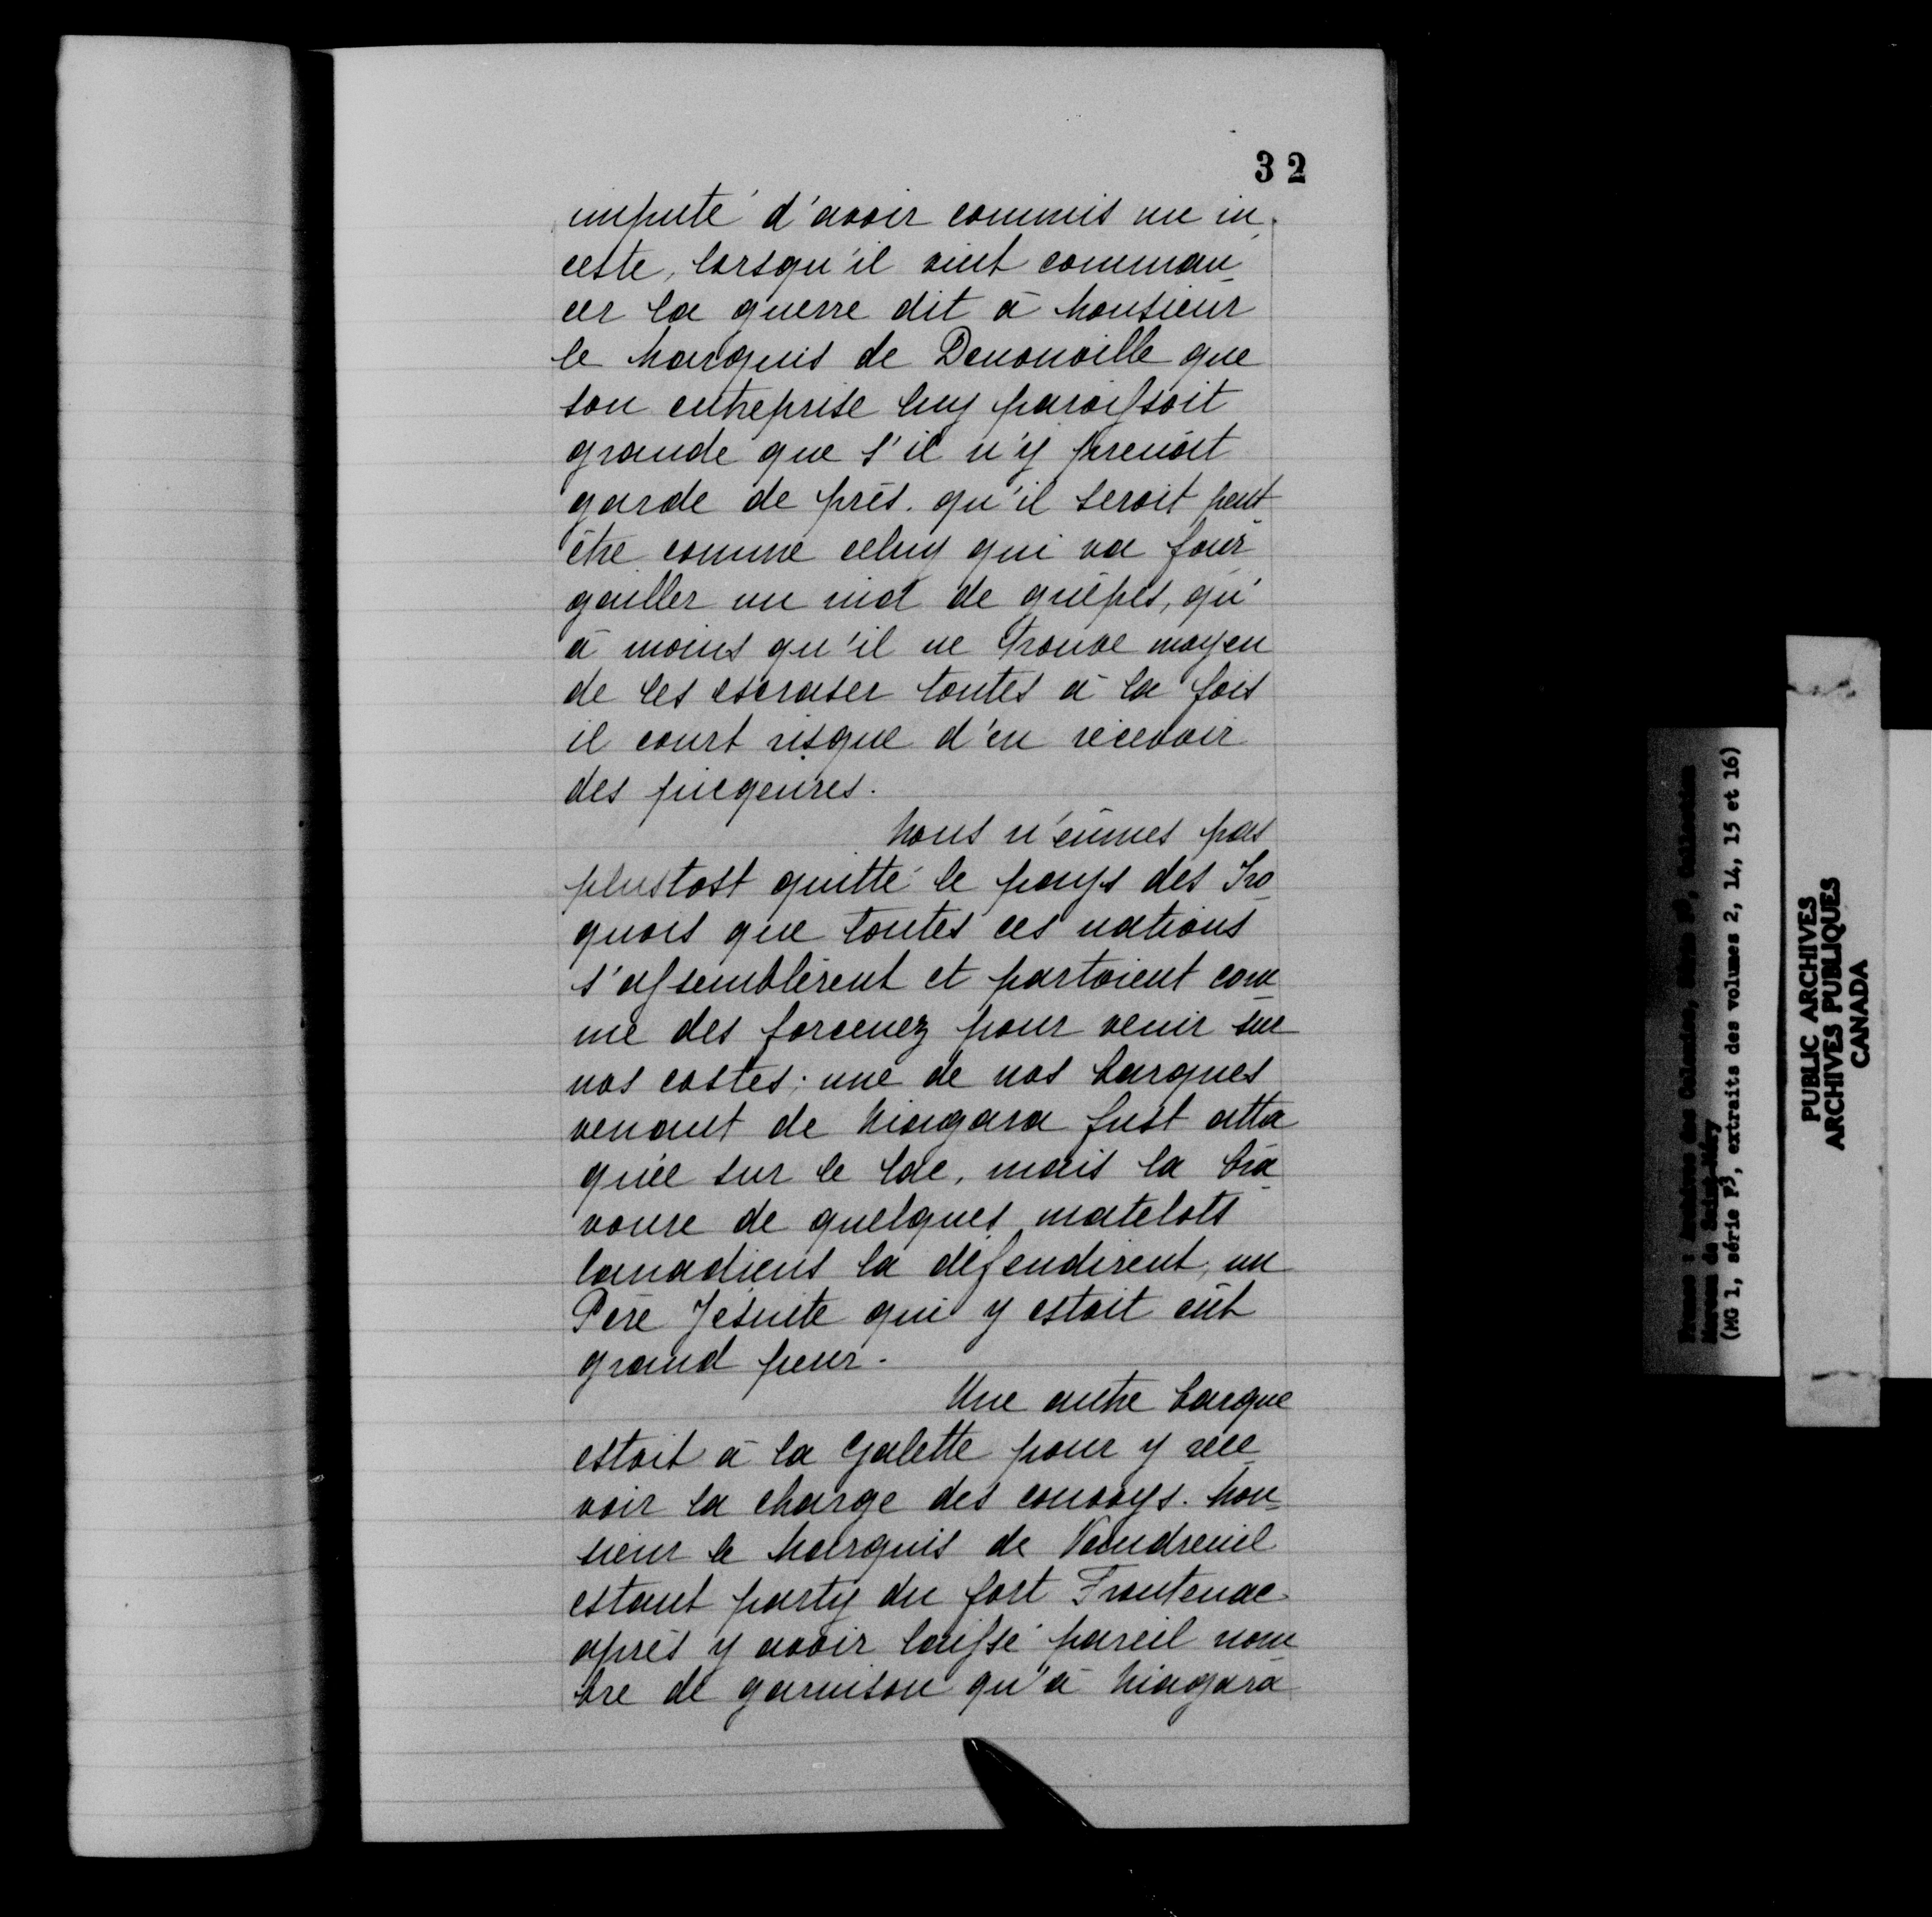 32
imputé d'avoir commis un in-
ceste, lorsqu'il vint comman-
cer la guerre dit à Monsieur
le Marquis de Denonville que
son entreprise luy paroissoit
grande que s'il n'y prenoit
garde de près. qu'il seroit peut
être comme celuy qui va four-
gailler un nid de guêpes, qu'
à moins qu'il ne trouve moyen
de les escraser toutes à la fois
il court risque d'en recevoir
des piegeures.
Nous n'eûmes pas
plustost quitté le pays des Iro-
quois que toutes ces nations
s'assemblèrent et partoient com-
me des forcenez pour venir sur
nos costes; une de nos barques
venant de Niagara fust atta-
quée sur le lac, mais la bra-
voure de quelques matelots
Canadiens la défendirent, un
Père Jésuite qui y estoit eût
grand peur.
Une autre barque
estoit à la Galette pour y rece-
voir la charge des convoys. Mon-
sieur le Marquis de Vaudreuil
estant party du fort Frontenac
après y avoir laissé pareil nom-
bre de garnison qu'à Niagara
France : Archives des Colonies, Série F3, Collection
Moreau de Saint-Méry
(MG 1, série F3, extraits des volumes 2, 14, 15 et 16)
PUBLIC ARCHIVES
ARCHIVES PUBLIQUES
CANADA